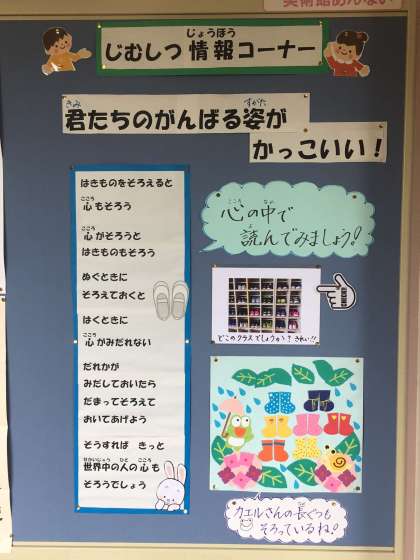 美術館あんない
じょうほう
じむしつ情報コーナー
きみ すがた
君たちのがんばる姿が
かっこいい！
はきものをそろえると
こころ
心もそろう
こころ
心がそろうと
はきものもそろう
ぬぐときに
そろえておくと
はくときに
こころ
心がみだれない
だれかが
みだしておいたら
だまってそろえて
おいてあげよう
そうすれば きっと
せかいじゅう ひと こころ
世界中の人の心も
そろうでしょう
こころ なか
心の中で
よ
読んでみましょう!
どこのクラスでしょうか? きれい!!
カエルさんの長ぐつも
そろっているね!